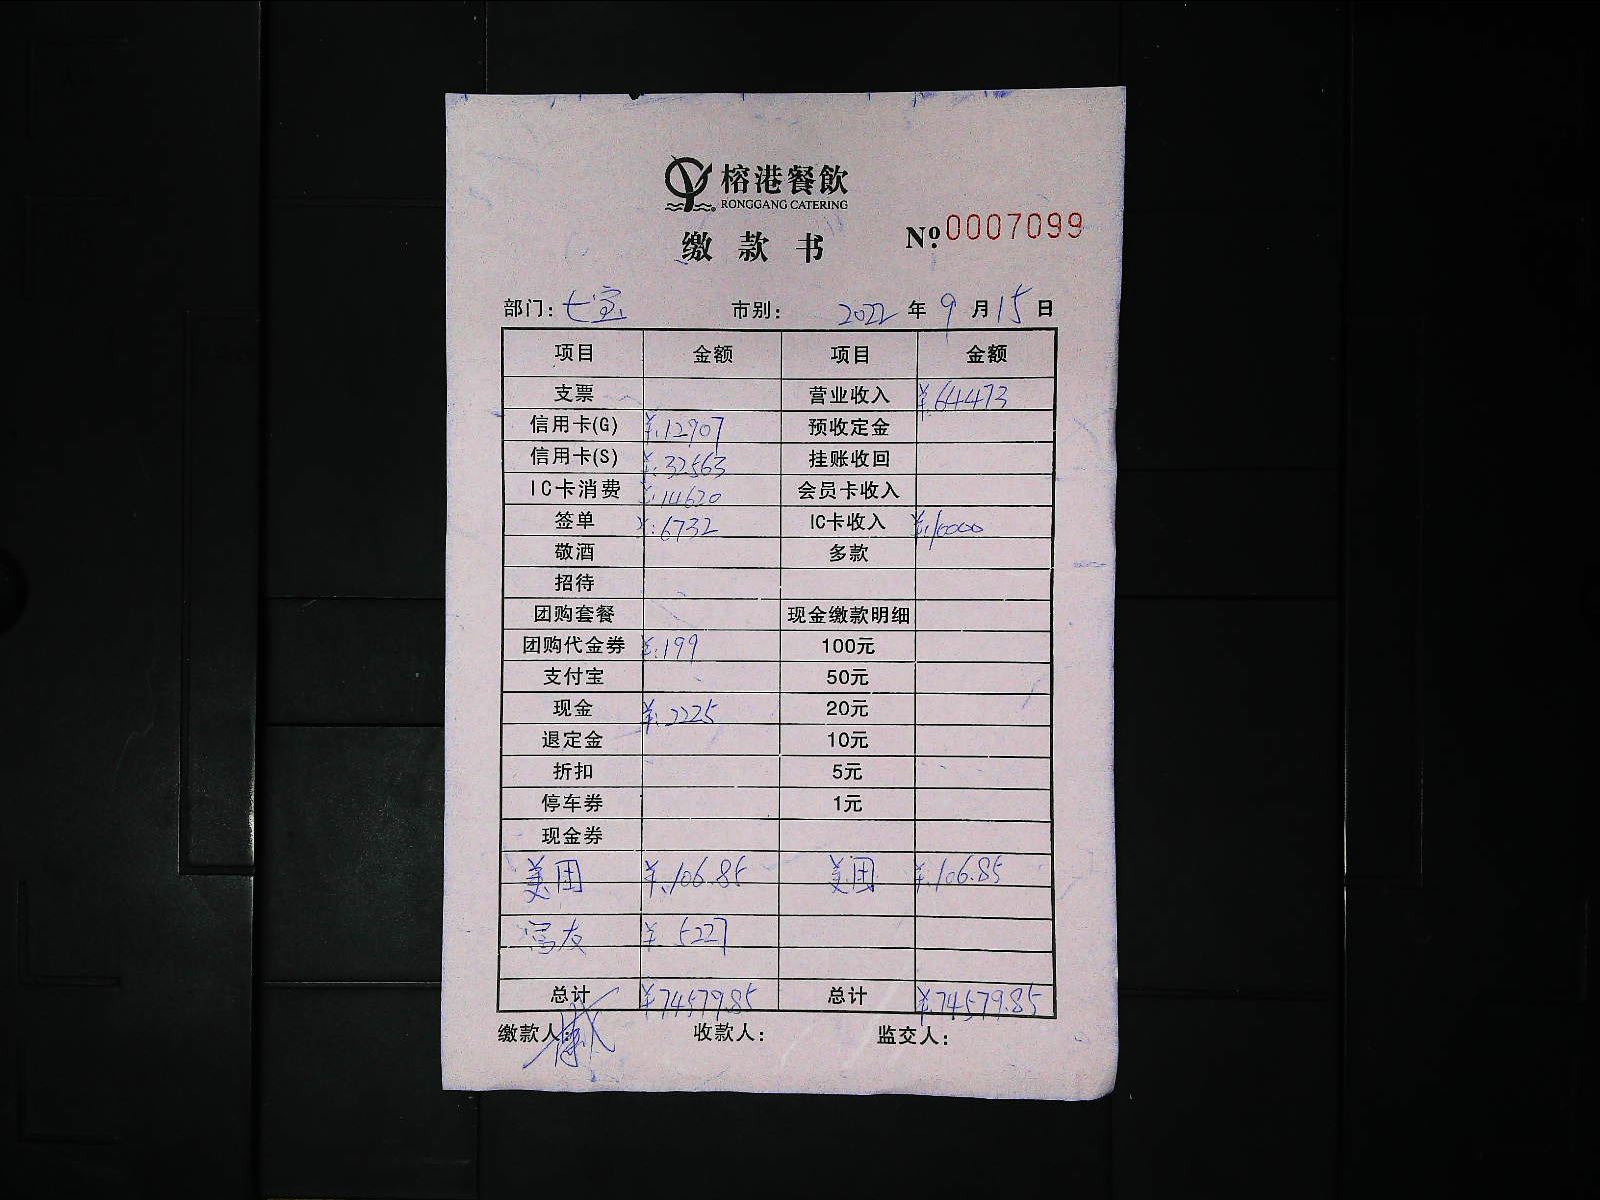 榕港餐飲
RONGGANG CATERING
缴款书 Nº: 0007099
部门: 七宝 市别: 2022 年 9 月 15 日
项目 金额 项目 金额
支票 营业收入 ¥:64473
信用卡(G) ¥:12907 预收定金
信用卡(S) ¥:32563 挂账收回
IC卡消费 ¥:14620 会员卡收入
签单 ¥:6732 IC卡收入 ¥:10000
敬酒 多款
招待
团购套餐 现金缴款明细
团购代金券 ¥:199 100元
支付宝 50元
现金 ¥:2225 20元
退定金 10元
折扣 5元
停车券 1元
现金券
美团 ¥:106.85 美团 ¥:106.85
¥ 5227
总计 ¥74579.85 总计 ¥74579.85
缴款人: 收款人: 监交人: